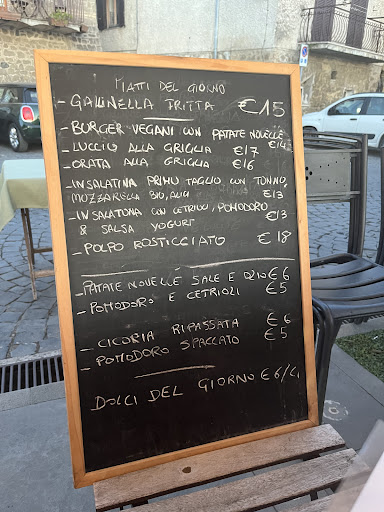 PIATTI DEL GIORNO
- GALLINELLA FRITTA €15
- BURGER VEGANI CON PATATE NOVELLE €14
- LUCCIO ALLA GRIGLIA €17
- ORATA ALLA GRIGLIA €16
- INSALATINA PRIMO TAGLIO CON TONNO,
MOZZARELLA BIO, ALICI €13
- INSALATONA CON CETRIOLI, POMODORO
& SALSA YOGURT €13
- POLPO ROSTICCIATO €18
- PATATE NOVELLE SALE E OLIO €6
- POMODORO E CETRIOLI €5
- CICORIA RIPASSATA €6
- POMODORO SPACCATO €5
DOLCI DEL GIORNO €6/4